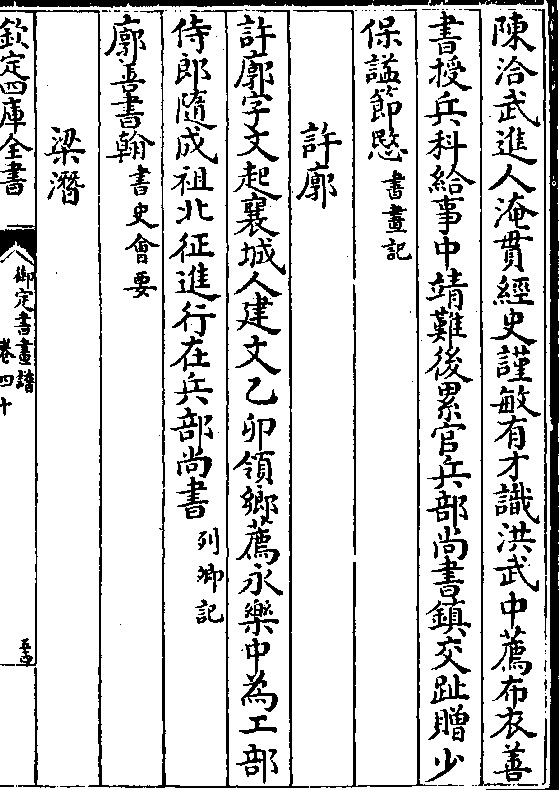 陳洽武進人淹貫經史謹敏有才識洪武中薦布衣善
書授兵科給事中靖難後累官兵部尚書鎮交趾贈少
保諡節愍書畫記
許廓
許廓字文起襄城人建文乙卯領鄉薦永樂中為工部
侍郎隨成祖北征進行在兵部尚書列卿記
廓善書翰書史會要
梁潛
欽定四庫全書
御定書畫譜
卷四十
五十四